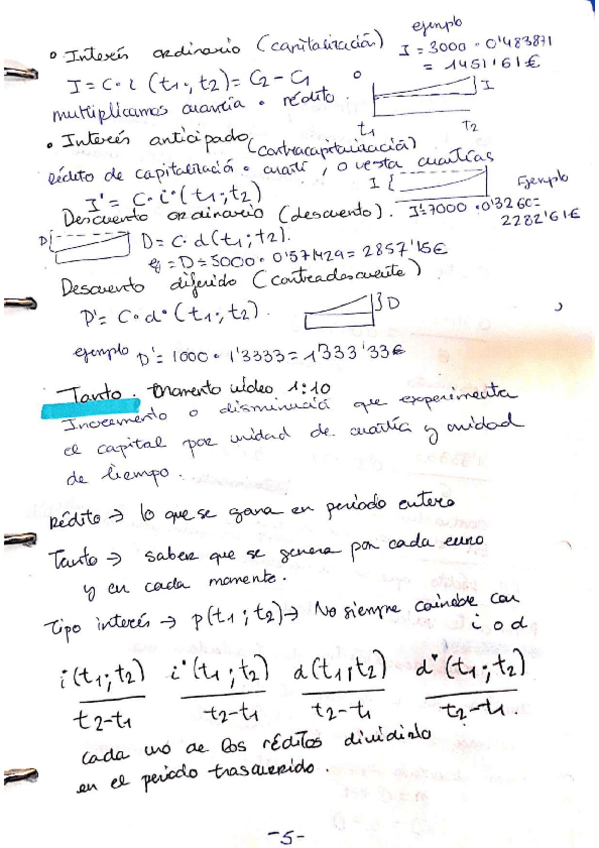 ejemplo
• Interés ordinario (capitalización) I = 3000 • 0'483871
= 1451'61€
I = C • i (t1; t2) = C2 - C1
multiplicamos cuantía • rédito.
I
t1 T2
• Interés anticipado (contracapitalización)
rédito de capitalización • cuantí, o resta cuantías
I' = C • i• (t1; t2)
I
Ejemplo
Descuento ordinario (descuento). I' = 7000 • 0'3260 =
2282'61€
D D = C • d (t1; t2).
ej = D = 5000 • 0'571429 = 2857'15€
Descuento diferido (contradescuento)
D' = C • d• (t1; t2).
D
ejemplo D' = 1000 • 1'3333 = 1'333'33€
Tanto. Momento vídeo 1:10
Incremento o disminució que experimenta
el capital por unidad de cuantía y unidad
de tiempo.
Rédito → lo que se gana en período entero
Tanto → saber que se genera por cada euro
y en cada momento.
Tipo interés → p(t1; t2) → No siempre coincide con
i o d
i(t1; t2) i•(t1; t2) d(t1; t2) d•(t1; t2)
t2-t1 t2-t1 t2-t1 t2-t1.
cada uno de los réditos dividirlo
en el período trascurrido.
-5-